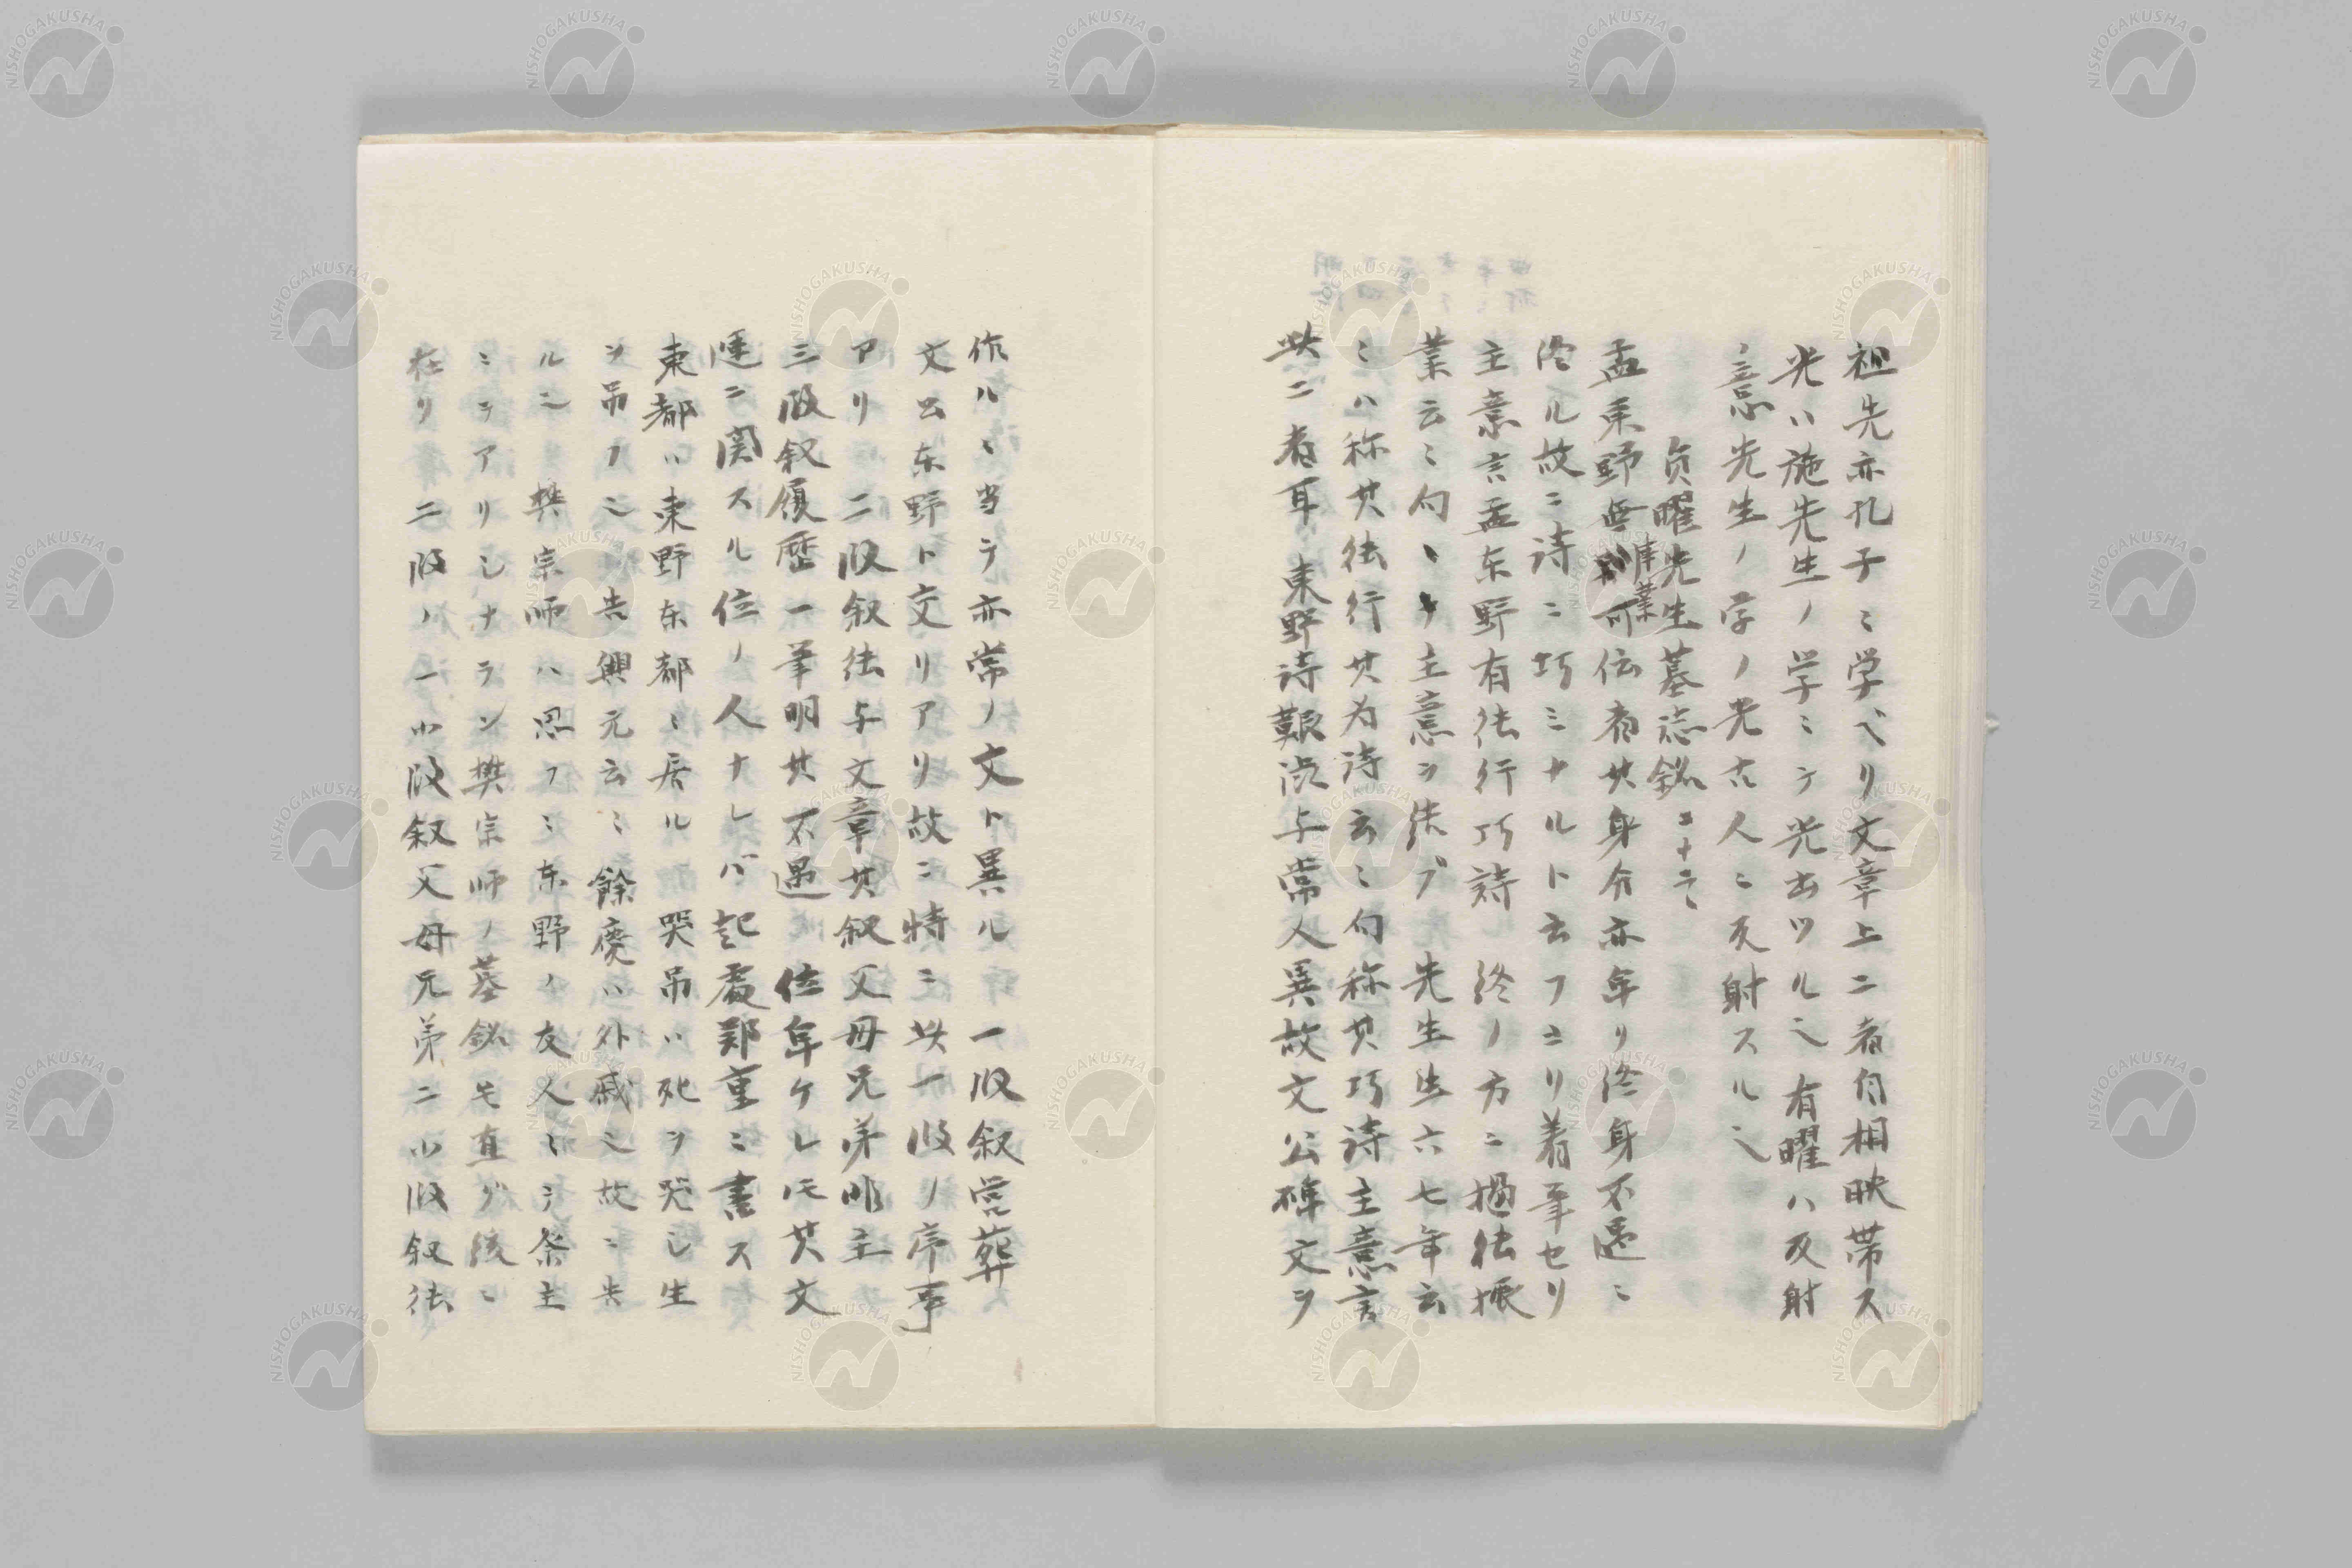 祖先亦孔子ニ学ベリ文章上二者自相映帯ス
光ハ施先生ノ学ニテ光出ツル也有曜ハ反射
ノ意先生ノ学ノ光古人ニ反射スル也
貞曜先生墓誌銘
孟東野無事業可伝者其身分亦卑リ終身不遇ニ
終ル故ニ詩ニ巧ミナルト云フヨリ着筆セリ
主意言孟东野有徳行巧詩 終ノ方ニ掲徳振
業云ミ句 主意ヲ結ブ 先生生六七年云
ミハ称其徳行其为詩云ミ句称其巧詩主意言
此二者耳東野詩艱渋与常人異故文公碑文ヲ
作ルニ当テ亦常ノ文ト異ル 一段叙営葬
文公东野ト交リアリ故ニ特ニ此一段ノ序事
アリ 二段叙徳与文章其叙父母兄弟 主
三段叙履歴一筆明其不遇 位卑ケレ𪜈其文
運ニ関スル位ノ人ナレバ起處鄭重ニ書ス
東都ハ東野东都ニ居ル 哭吊ハ死ヲ哭シ生
ヲ吊フ也 告興元云ミ 餘慶ハ外戚也故ニ告
ル也 樊宗師ハ思フニ东野ノ友人ニテ祭主
ニテアリシナラン樊宗师ノ墓銘モ直グ後ニ
在リ 二段ノ一小段叙父母兄弟二小段叙徳